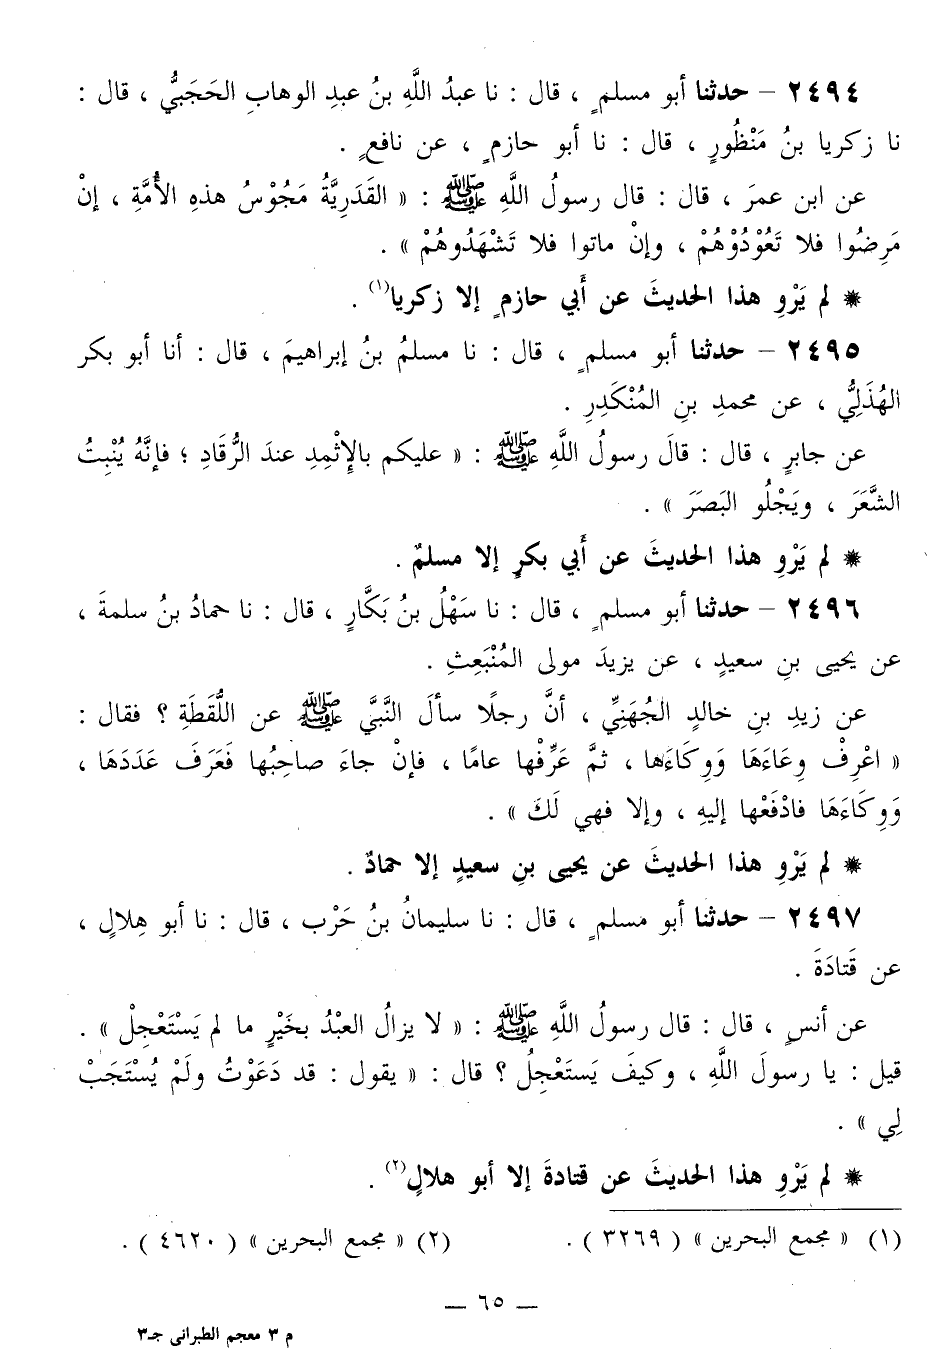 ٢٤٩٤ – حدثنا أبو مسلمٍ ، قال : نا عبدُ اللَّهِ بنُ عبدِ الوهابِ الحَجَبيُّ ، قال :
نا زكريا بنُ مَنْظُورٍ ، قال : نا أبو حازمٍ ، عن نافعٍ .
عن ابن عمرَ ، قال : قال رسولُ اللَّهِ ﷺ : « القَدَرِيَّةُ مَجُوْسُ هذهِ الأُمَّةِ ، إنْ
مَرِضُوا فلا تَعُوْدُوْهُمْ ، وإنْ ماتوا فلا تَشْهَدُوهُمْ » .
* لم يَرْوِ هذا الحديثَ عن أَبي حازمٍ إلا زكريا(١) .
٢٤٩٥ – حدثنا أبو مسلمٍ ، قال : نا مسلمُ بنُ إبراهيمَ ، قال : أنا أبو بكر
الهُذَلِيُّ ، عن محمدِ بنِ المُنْكَدِرِ .
عن جابرٍ ، قال : قالَ رسولُ اللَّهِ ﷺ : « عليكم بالإِثْمِدِ عندَ الرُّقَادِ ؛ فإنَّهُ يُنْبِتُ
الشَّعَرَ ، ويَجْلُو البَصَرَ » .
* لم يَرْوِ هذا الحديثَ عن أَبي بكرٍ إلا مسلمٌ .
٢٤٩٦ – حدثنا أبو مسلمٍ ، قال : نا سَهْلُ بنُ بَكَّارٍ ، قال : نا حمادُ بنُ سلمةَ ،
عن يحيى بنِ سعيدٍ ، عن يزيدَ مولى المُنْبَعِثِ .
عن زيدِ بنِ خالدٍ الجُهَنِيِّ ، أنَّ رجلًا سألَ النَّبيَّ ﷺ عن اللُّقَطَةِ ؟ فقال :
« اعْرِفْ وِعَاءَهَا وَوِكَاءَها ، ثمَّ عَرِّفْها عامًا ، فإنْ جاءَ صاحِبُها فَعَرَفَ عَدَدَهَا ،
وَوِكَاءَهَا فادْفَعْها إليهِ ، وإلا فهي لَكَ » .
* لم يَرْوِ هذا الحديثَ عن يحيى بنِ سعيدٍ إلا حمادٌ .
٢٤٩٧ – حدثنا أبو مسلمٍ ، قال : نا سليمانُ بنُ حَرْب ، قال : نا أبو هِلالٍ ،
عن قَتادَةَ .
عن أنسٍ ، قال : قال رسولُ اللَّهِ ﷺ : « لا يزالُ العبْدُ بخَيْرٍ ما لم يَسْتَعْجِلْ » .
قيل : يا رسولَ اللَّهِ ، وكيفَ يَستَعْجِلُ ؟ قال : « يقول : قد دَعَوْتُ ولَمْ يُسْتَجَبْ
لِي » .
* لم يَرْوِ هذا الحديثَ عن قتادةَ إلا أبو هلالٍ(٢) .
(١) « مجمع البحرين » ( ٣٢٦٩ ) . (٢) « مجمع البحرين » ( ٤٦٢٠ ) .
— ٦٥ —
م ٣ معجم الطبراني جـ٣